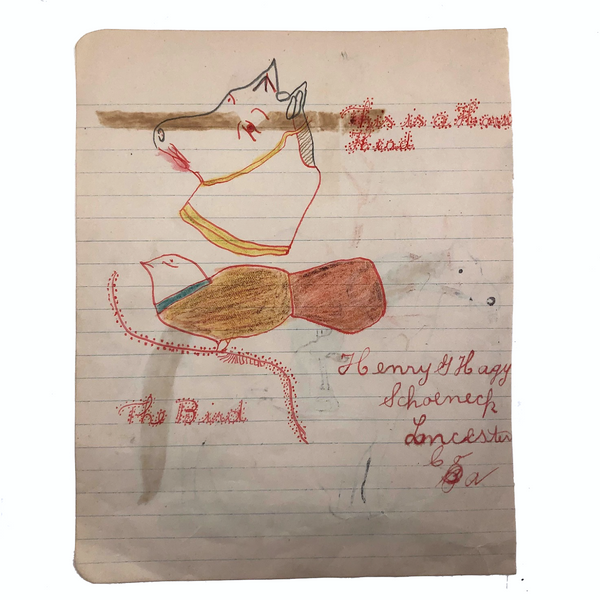 This is a
Head
The Bird
Henry G Hagy
Schoeneck
Lancester
Co
Pa